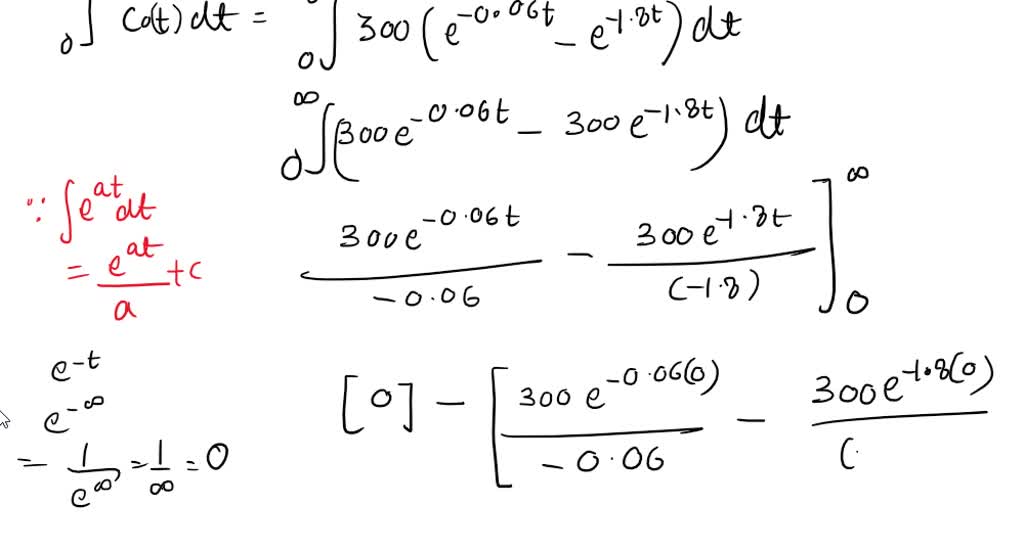 ₀∫ C₀(t) dt = ₀∫ 300 (e^-0.06t - e^-1.8t) dt
₀∫^∞ (300 e^-0.06t - 300 e^-1.8t) dt
∵ ∫ e^at dt
= e^at / a + c
300 e^-0.06t / -0.06 - 300 e^-1.8t / (-1.8) ]₀^∞
e^-t
e^-∞
= 1/e^∞ = 1/∞ = 0
[0] - [ 300 e^-0.06(0) / -0.06 - 300 e^-1.8(0) / (